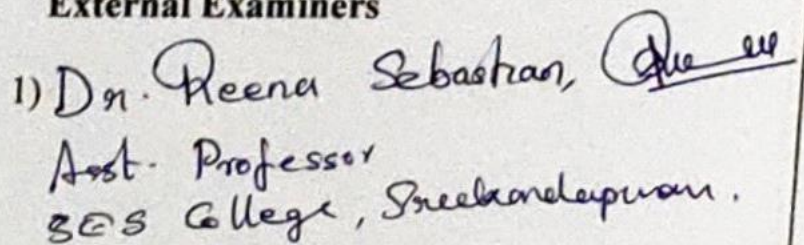 External Examiners
1) Dr. Reena Sebastian,
Asst. Professor
SES College, Sreekandapuram.